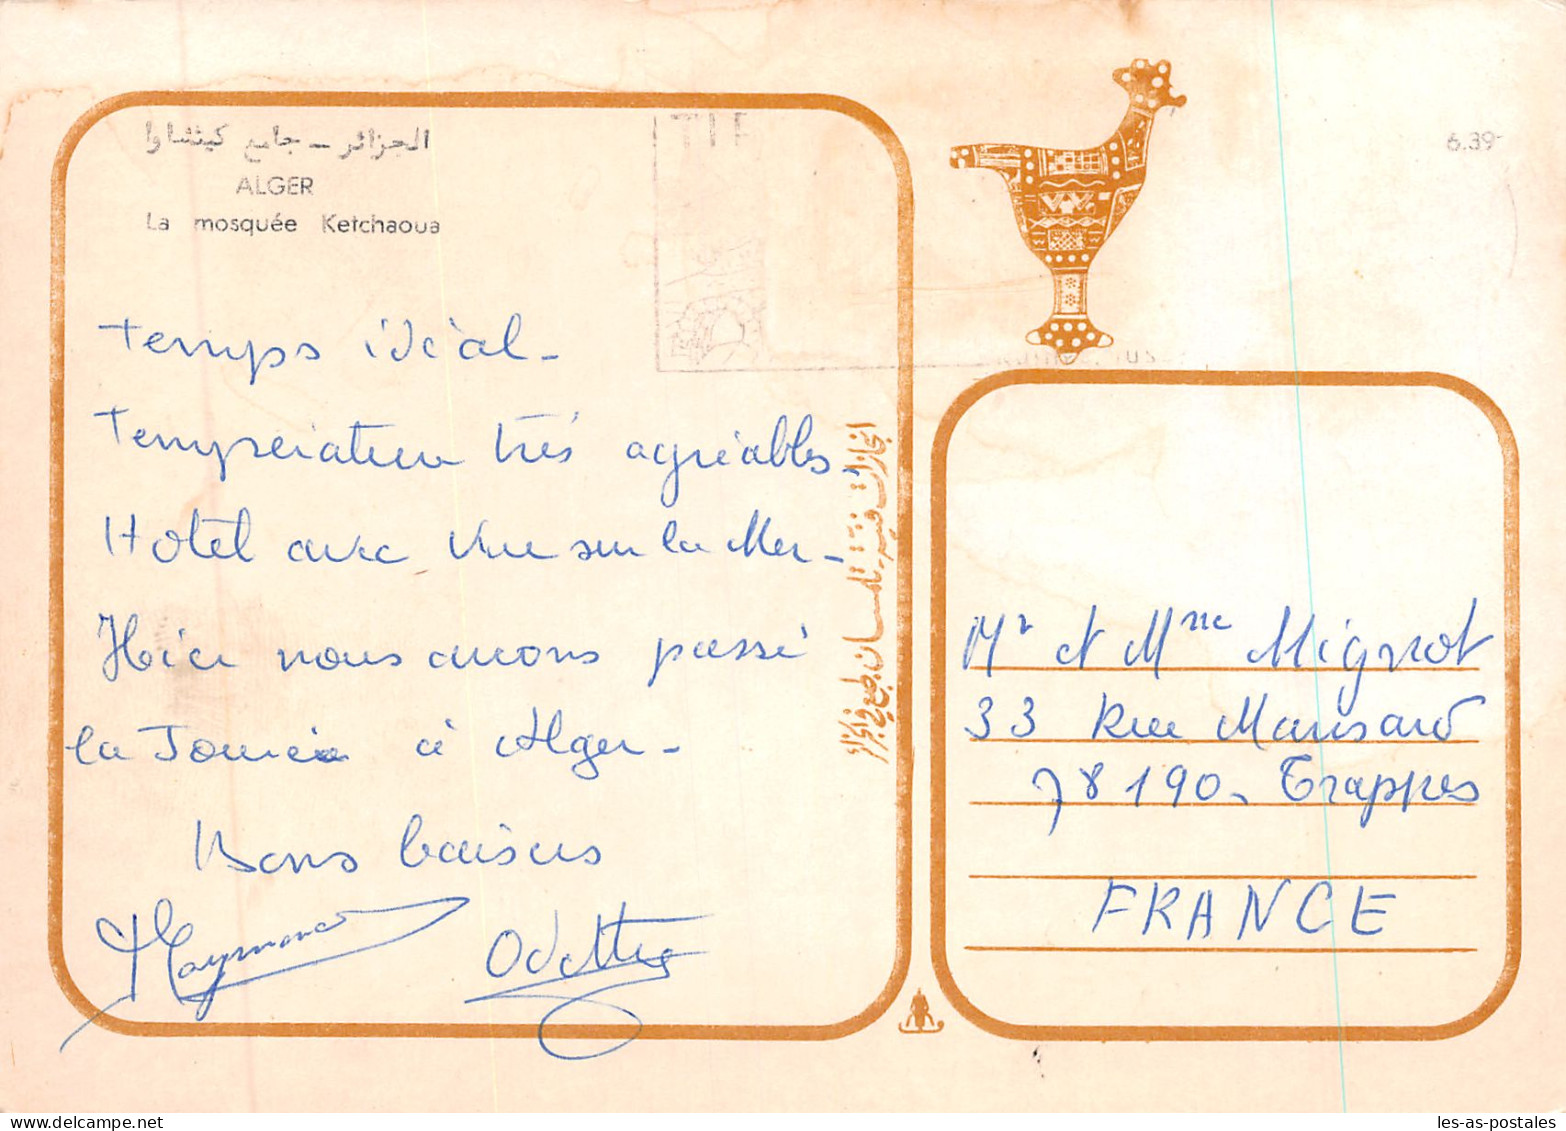 الجزائر - جامع كيتشاوا
ALGER
La mosquée Ketchaoua
TIP
6.39
Temps idéal -
Température très agréables -
Hotel avec vue sur la Mer -
Hier nous avons passé
la Journée à Alger -
Bons baisers
Raymond
Odette
Mr et Mme Mignot
33 Rue Mansard
78190 - Trappes
FRANCE
les-as-postales